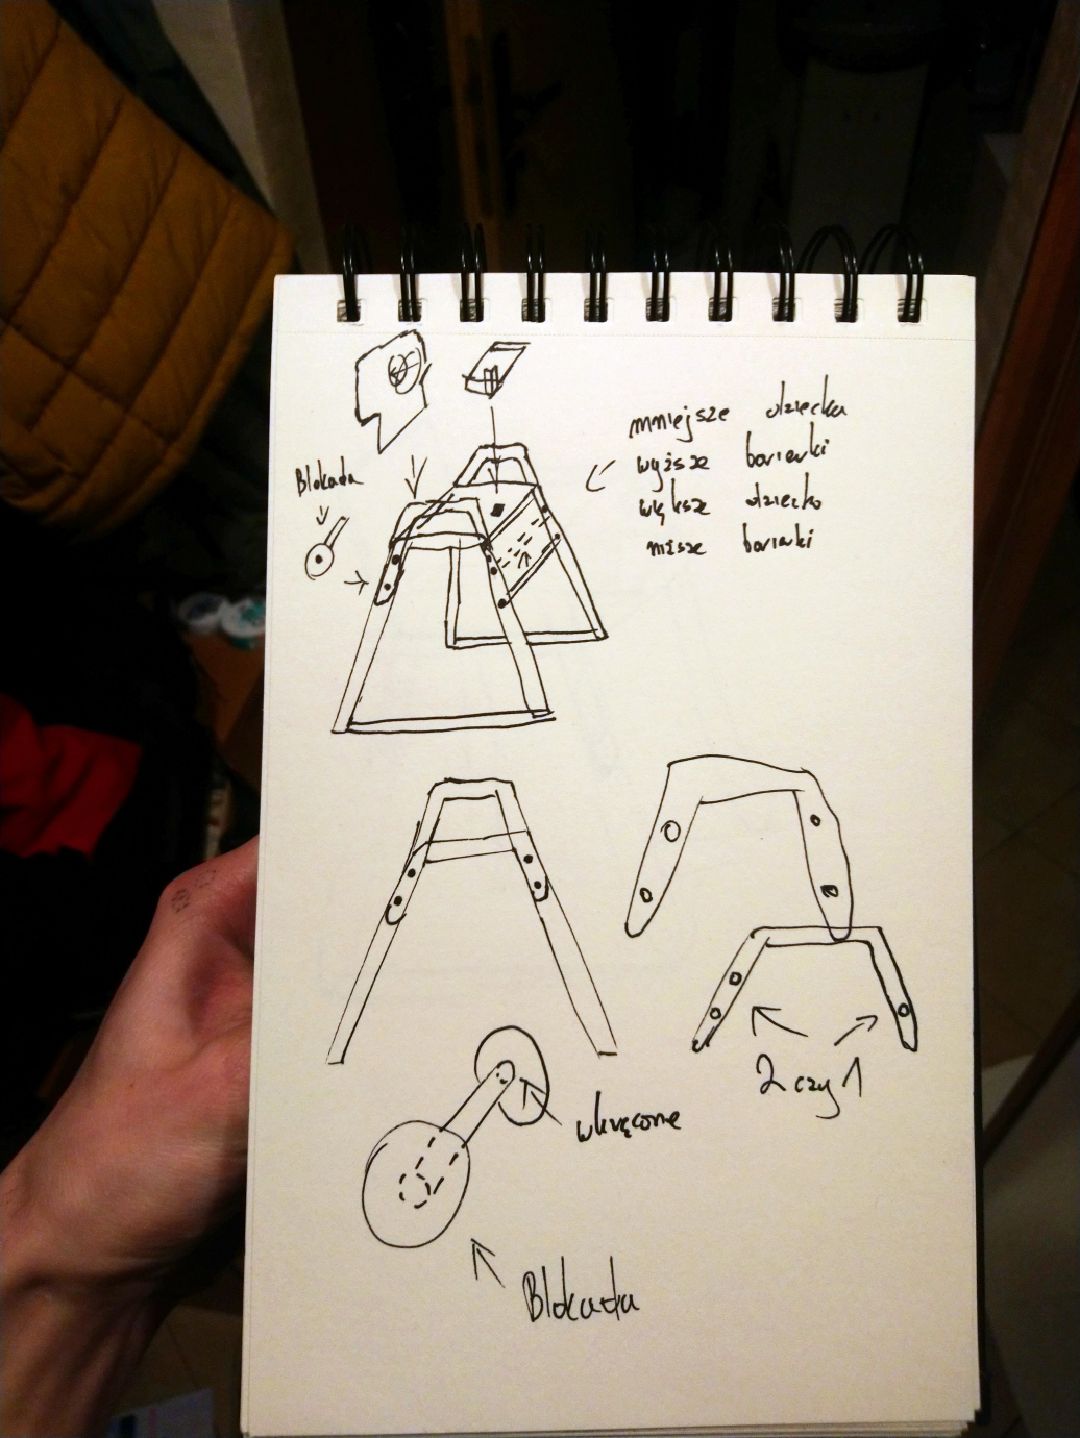 Blokada
mniejsze dziecka
wyższe barierki
większe dziecko
niższe barierki
2 czy 1
wkręcone
Blokada